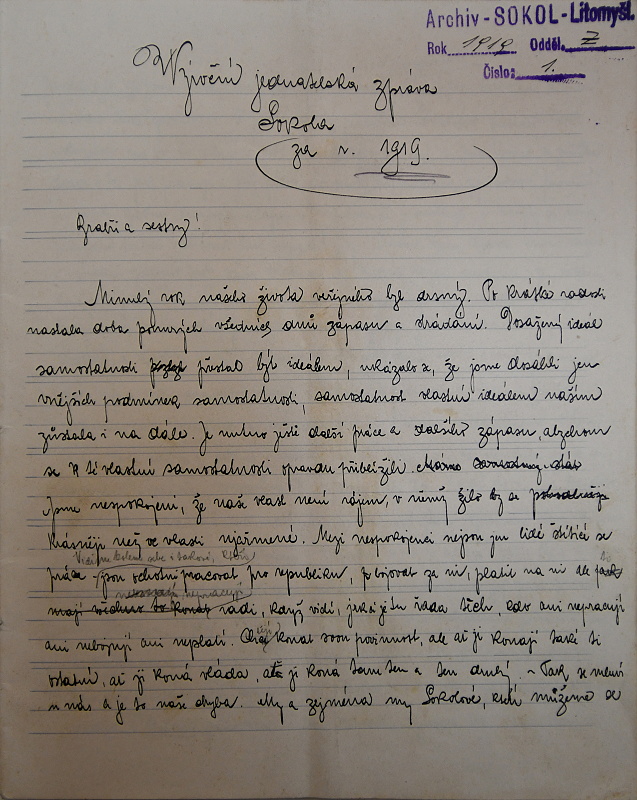 Archiv - SOKOL - Litomyšl.
Rok 1919 Odděl. Ž
Číslo: 1.
Výroční jednatelská zpráva
Sokola
za r. 1919.
Bratři a sestry!
Minulý rok našeho života veřejného byl drsný. Po krátké radosti
nastala doba ponurých všedních dnů zápasu a strádání. Dosažený ideál
samostatnosti přestal být ideálem, ukázalo se, že jsme dosáhli jen
vnějších podmínek samostatnosti, samostatnost vlastní ideálem naším
zůstala i na dále. Je nutno ještě další práce a dalšího zápasu, abychom
se k té vlastní samostatnosti opravdu přiblížili.
Jsme nespokojeni, že naše vlast není rájem, v němž žilo by se
krásněji než ve vlasti ujařmené. Mezi nespokojenci nejsou jen lidé štítící se
Vidíme kolem sebe i takové, kteří
práce jsou ochotni pracovat, pro republiku, bojovat za ni, platit na ni ale
neradi, když vidí, jak je řada těch, kdo ani nepracují
ani nebojují ani neplatí. Chtějí konat svou povinnost, ale ať ji konají také ti
ostatní, ať ji koná vláda, ať ji koná ten a ten druhý. - Tak se mluví
u nás a je to naše chyba. My a zejména my Sokolové, kteří můžeme se